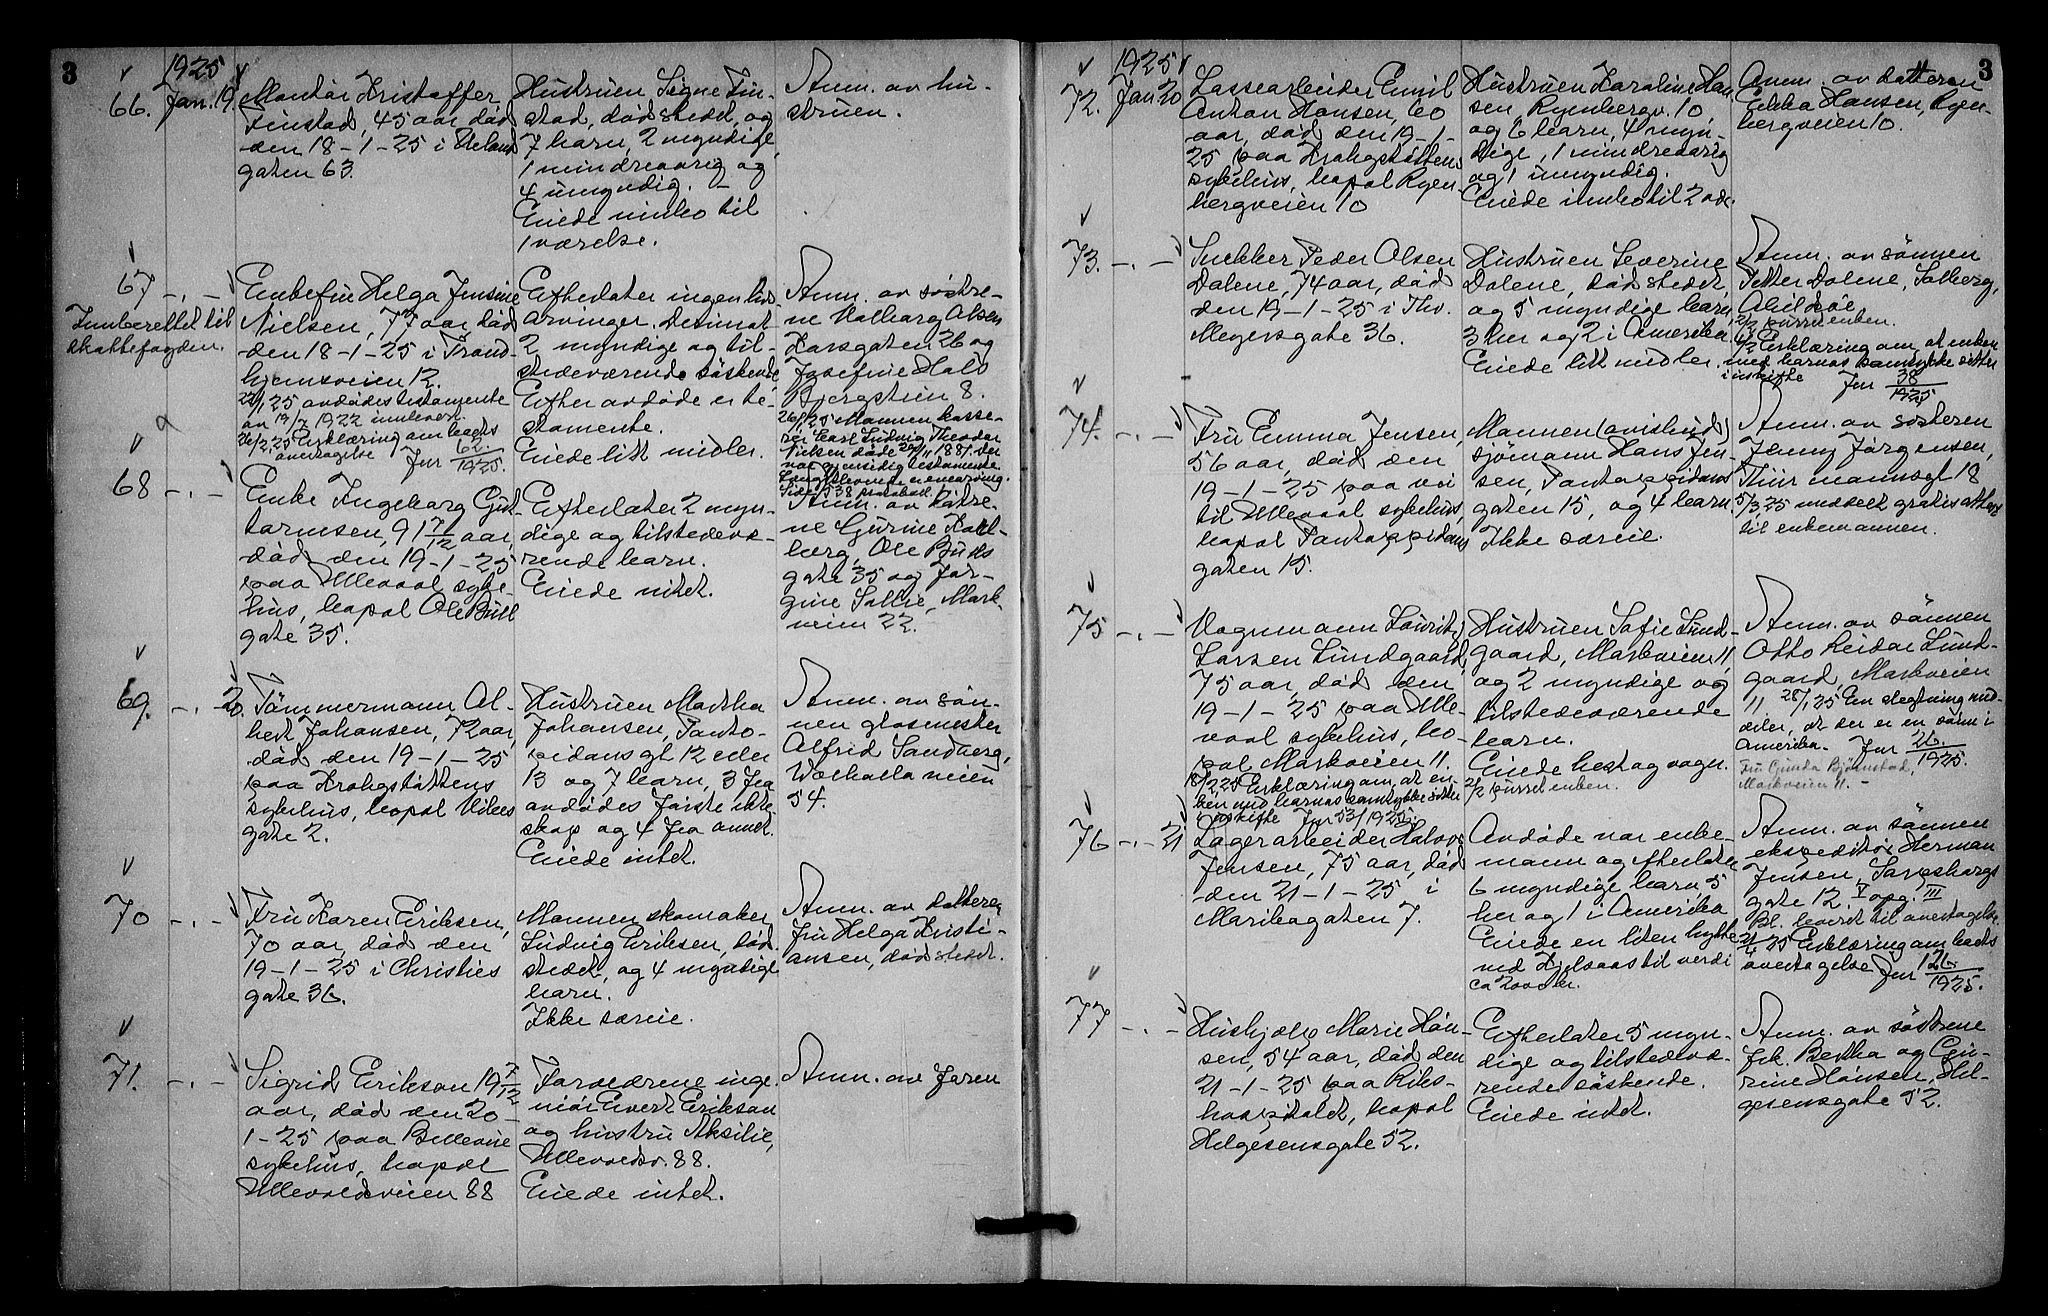 3
1925
66. Jan. 19.
Montør Kristoffer
Finstad, 45 aar død
den 18-1-25 i Ueland
gaten 63.
Hustruen Signe Fin-
stad, død stedet, og
7 barn, 2 myndige,
1 mindreaarig og
4 umyndig. -
Eiede innbo til
1 værelse.
Anm. av hu-
struen.
67 -.-
Innberettet til
skattefogden.
Enkefru Helga Jensine
Nielsen, 77 aar, død
den 18-1-25 i Trond-
hjemsveien 12.
22/1 25 avdødes testamente
av 19/7 1922 innlevert.
26/2 25 Erklæring om boets
overtagelse Jnr 62/1925.
Efterlater ingen livs
arvinger. Derimot
2 myndige og til-
stedeværende søskende
Efter avdøde er te-
stamente.
Eiede litt midler.
Anm. av søstre-
ne Valborg Olsen
Larsgaten 26 og
Josefine Holo
Bjergstien 8.
26/1 25 Mannen kasse-
rer Carl Ludvig Theodor
Nielsen døde 1881. Der
var gjensidig testamente.
68 -.-
Enke Ingeborg Gut-
tormsen, 91 7/12 aar,
død den 19-1-25
paa Ullevaal syke-
hus, bopæl Ole Bull
gate 35.
Efterlater 2 myn-
dige og tilstedevæ-
rende barn.
Eiede intet.
Anm. av døtre-
ne Gurine Karl-
berg, Ole Bulls
gate 35 og Jør-
gine Sollie, Mark-
veien 22.
69. -.- 20.
Tømmermann Al-
bert Johansen, 72 aar,
død den 19-1-25
paa Krohgstøttens
sykehus, bopæl Vibes
gate 2.
Hustruen Martha
Johansen, Panto-
pidans gt 12 eller
13 og 7 barn, 3 fra
avdødes første ekte
skap og 4 fra annet.
Eiede intet.
Anm. av søn-
nen glasmester
Alfred Sandberg,
Walhalla veien
54.
70 -.-
Fru Karen Eriksen,
70 aar, død den
19-1-25 i Christies
gate 36.
Mannen skomaker
Ludvig Eriksen, død
stedet, og 4 myndige
barn.
Ikke særeie.
Anm. av datteren
fru Helga Kristi-
ansen, død stedet.
71. -.-
Sigrid Erikson 19 7/12
aar, død den 20-
1-25 paa Bellevue
sykehus, bopæl
Ullevoldsveien 88
Forældrene inge-
niør Evert Erikson
og hustru Aksilie,
Ullevoldsv. 88.
Eiede intet.
Anm. av faren
3
1925
72. Jan 20
Lossearbeider Emil
Anton Hansen, 60
aar, død den 19-1-
25 paa Krohgstøttens
sykehus, bopæl Ryen-
bergveien 10
Hustruen Karoline Han
sen, Ryenbergv. 10,
og 6 barn, 4 myn-
dige, 1 mindreaarig
og 1 umyndig.
Eiede innbo til 2 vær.
Anm. av datteren
Ekka Hansen, Ryen-
bergveien 10.
73. -.-
Snekker Peder Olsen
Dalene, 74 aar, død
den 19-1-25 i Thv.
Meyersgate 36.
Hustruen Severine
Dalene, død stedet,
og 5 myndige barn,
3 her og 2 i Amerika.
Eiede litt midler.
Anm. av sønnen
Petter Dalene, Solberg,
Abildsø.
2/2 purret enken.
4/2 Erklæring om at enken
med barnas samtykke sitter
i uskifte Jnr 38/1925
74. -.-
Fru Emma Jensen,
56 aar, død den
19-1-25 paa vei
til Ullevaal sykehus,
bopæl Pantoppidans
gaten 15.
Mannen (avishud)
sjømann Hans Jen-
sen, Pantoppidans
gaten 15, og 4 barn.
Ikke særeie.
Anm. av søsteren
Jenny Jørgensen,
Thur mannsgt 18
5/3 25 meddelt gratis attest
til enkemannen.
75 -.-
Vognmann Lauritz
Larsen Lundgaard,
75 aar, død den
19-1-25 paa Ulle-
vaal sykehus, bo-
pæl Markveien 11.
18/2 25 Erklæring om, at en-
ken med barnas samtykke sitter
i uskifte Jnr 53/1925.
Hustruen Sofie Lund-
gaard, Markveien 11,
og 2 myndige og
tilstedeværende
barn.
Eiede hest og vogn.
2/2 purret enken.
Anm. av sønnen
Otto Reidar Lund-
gaard, Markveien
11 28/1 25 En slegtning med-
deler, at der er en sønn i
Amerika. Jnr 26/1925.
Fru Gunda Bjørnstad,
Markveien 11.
76 -.- 21
Lagerarbeider Halvor
Jensen, 75 aar, død
den 21-1-25 i
Maribogaten 7.
Avdøde var enke-
mann og efterlater
6 myndige barn, 5
her og 1 i Amerika
Eiede en liten hytte
ved Kjelsaas til verdi
ca 2000 kr.
Anm. av sønnen
ekspeditør Herman
Jensen, Sarpsborgs
gate 12 V opg. III
Bl. levert til overtagelse.
21/4 25 Erklæring om boets
overtagelse Jnr 126/1925.
77 -.-
Hushjælp Marie Han-
sen, 54 aar, død den
21-1-25 paa Riks-
hospitalet, bopæl
Helgesensgate 52.
Efterlater 5 myn-
dige og tilstedevæ-
rende søskende.
Eiede intet.
Anm. av søstrene
frk. Bertha og Gu-
rine Hansen, Hel-
gesensgate 52.